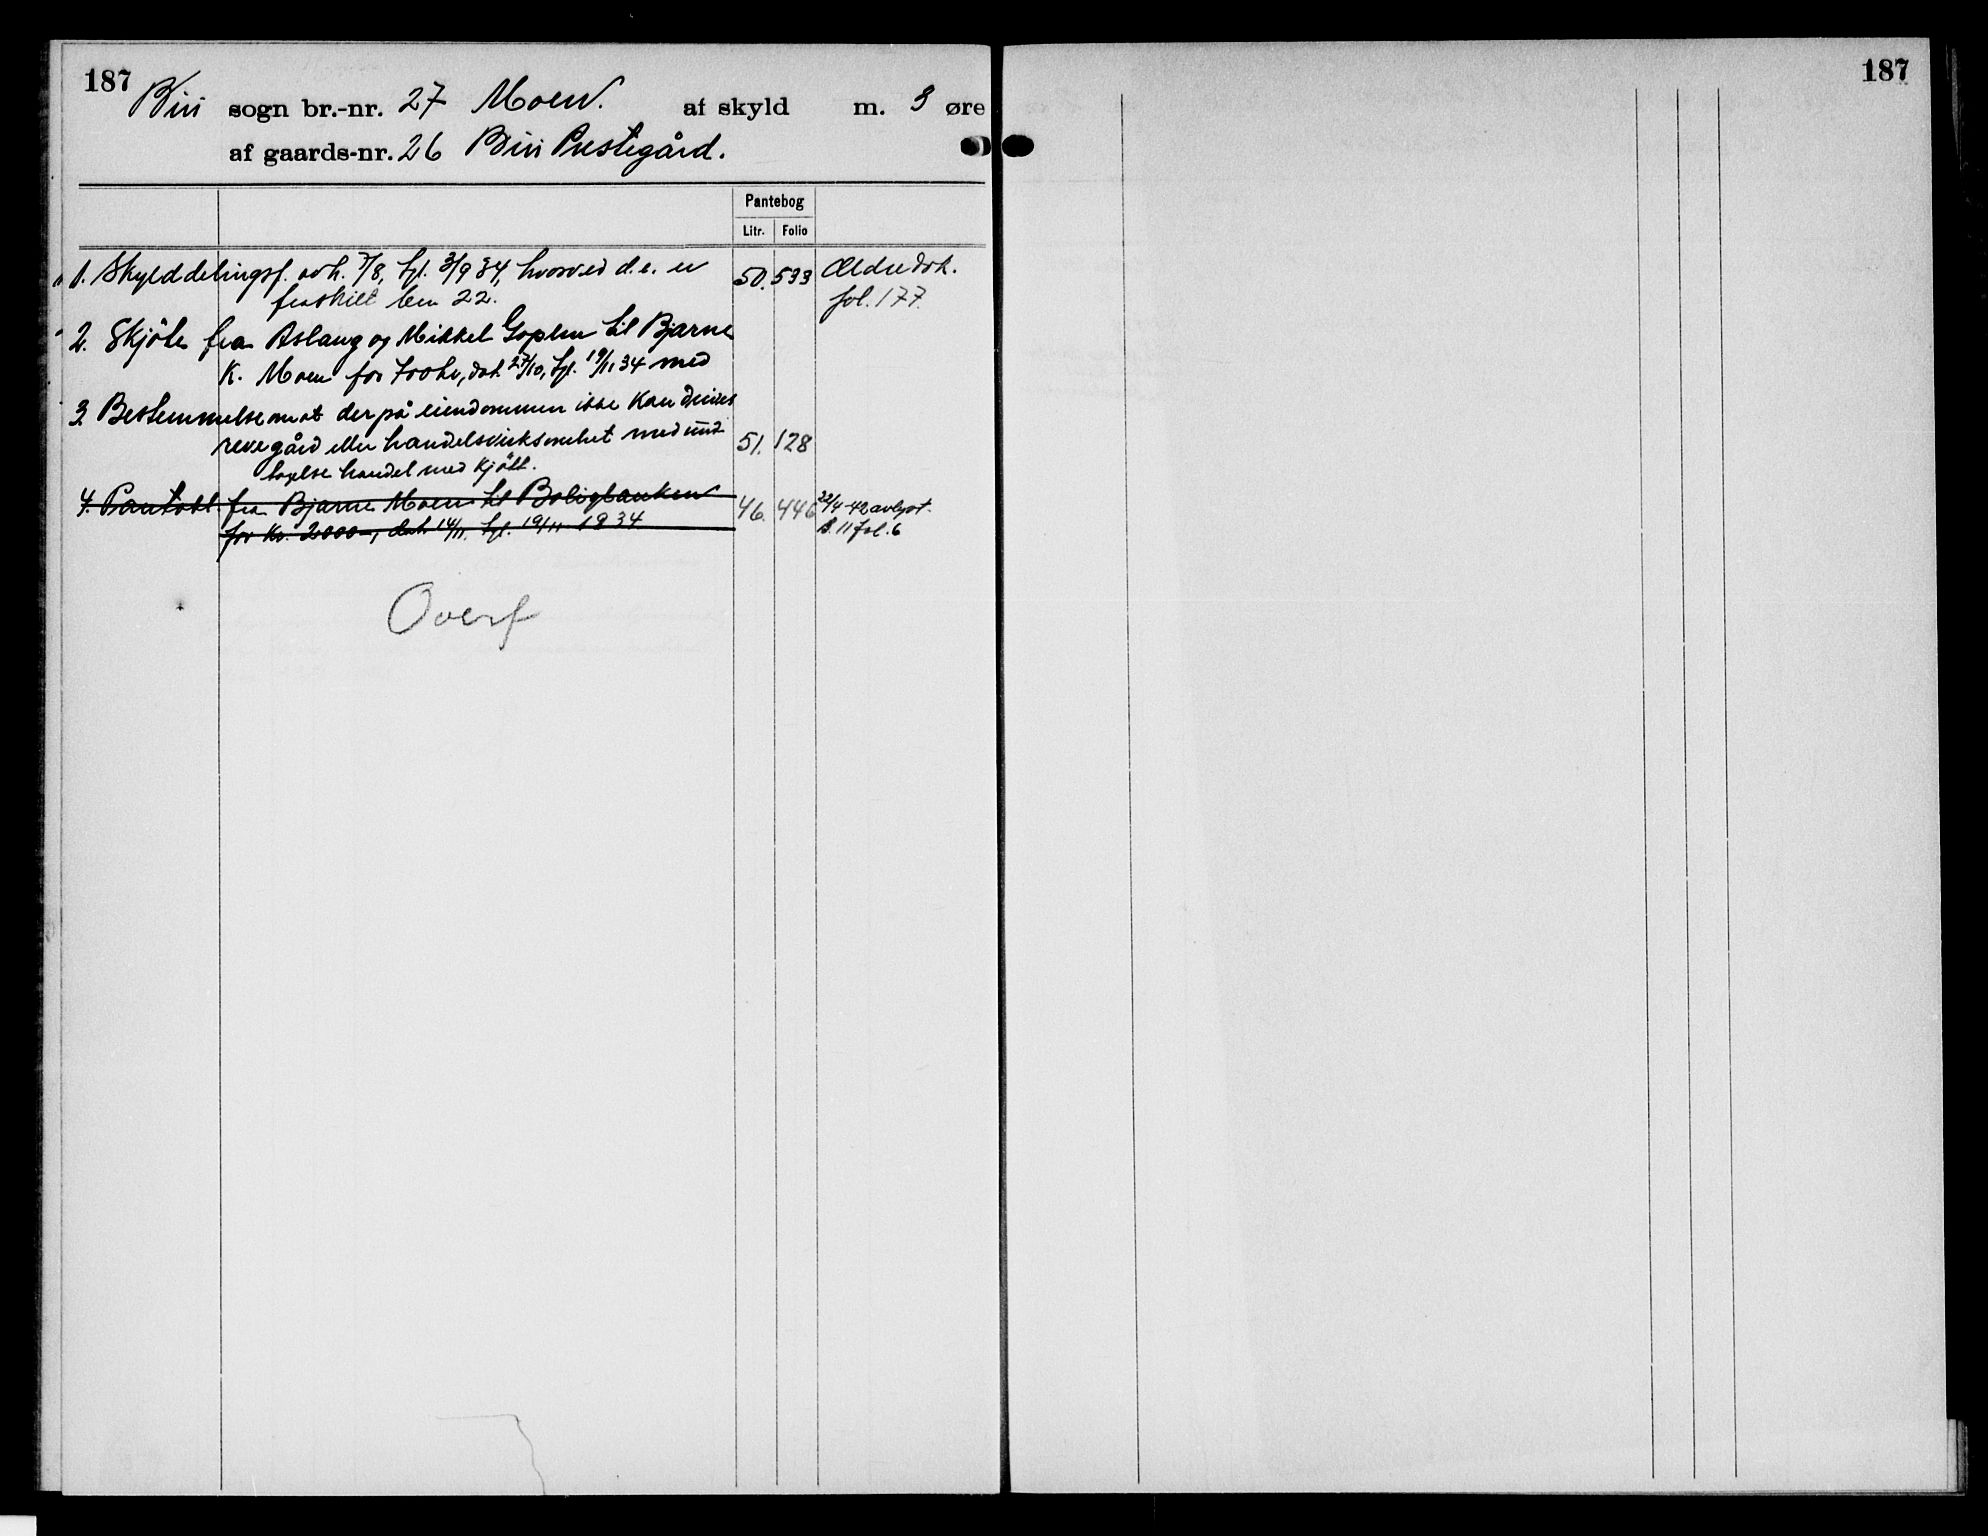 187
187
Biri sogn br.-nr. 27 Moen. af skyld m. 3 øre
af gaards-nr. 26 Biri Prestegård.
Pantebog
Litr. Folio
1. Skylddelingsf. avh. 7/8, tgl. 3/9 34, hvorved d.e. er 50. 533 Ældre dok.
fraskilt brn 22. fol. 177
2. Skjöte fra Aslaug og Mikkel Goplen til Bjarne
K. Moen for kr, dat. 27/10, tgl. 19/11 34 med
3. Bestemmelse om at der på eiendommen ikke kan drives
revegård eller handelsvirksomhet med und- 51. 128
tagelse handel med kjött.
4. Pantobl. fra Bjarne Moen til Boligbanken 46. 446 22/4-42 avlyst.
for kr. 2000-, dat. 14/11. tgl. 19/11 1934 B. 11 fol. 6
Overf